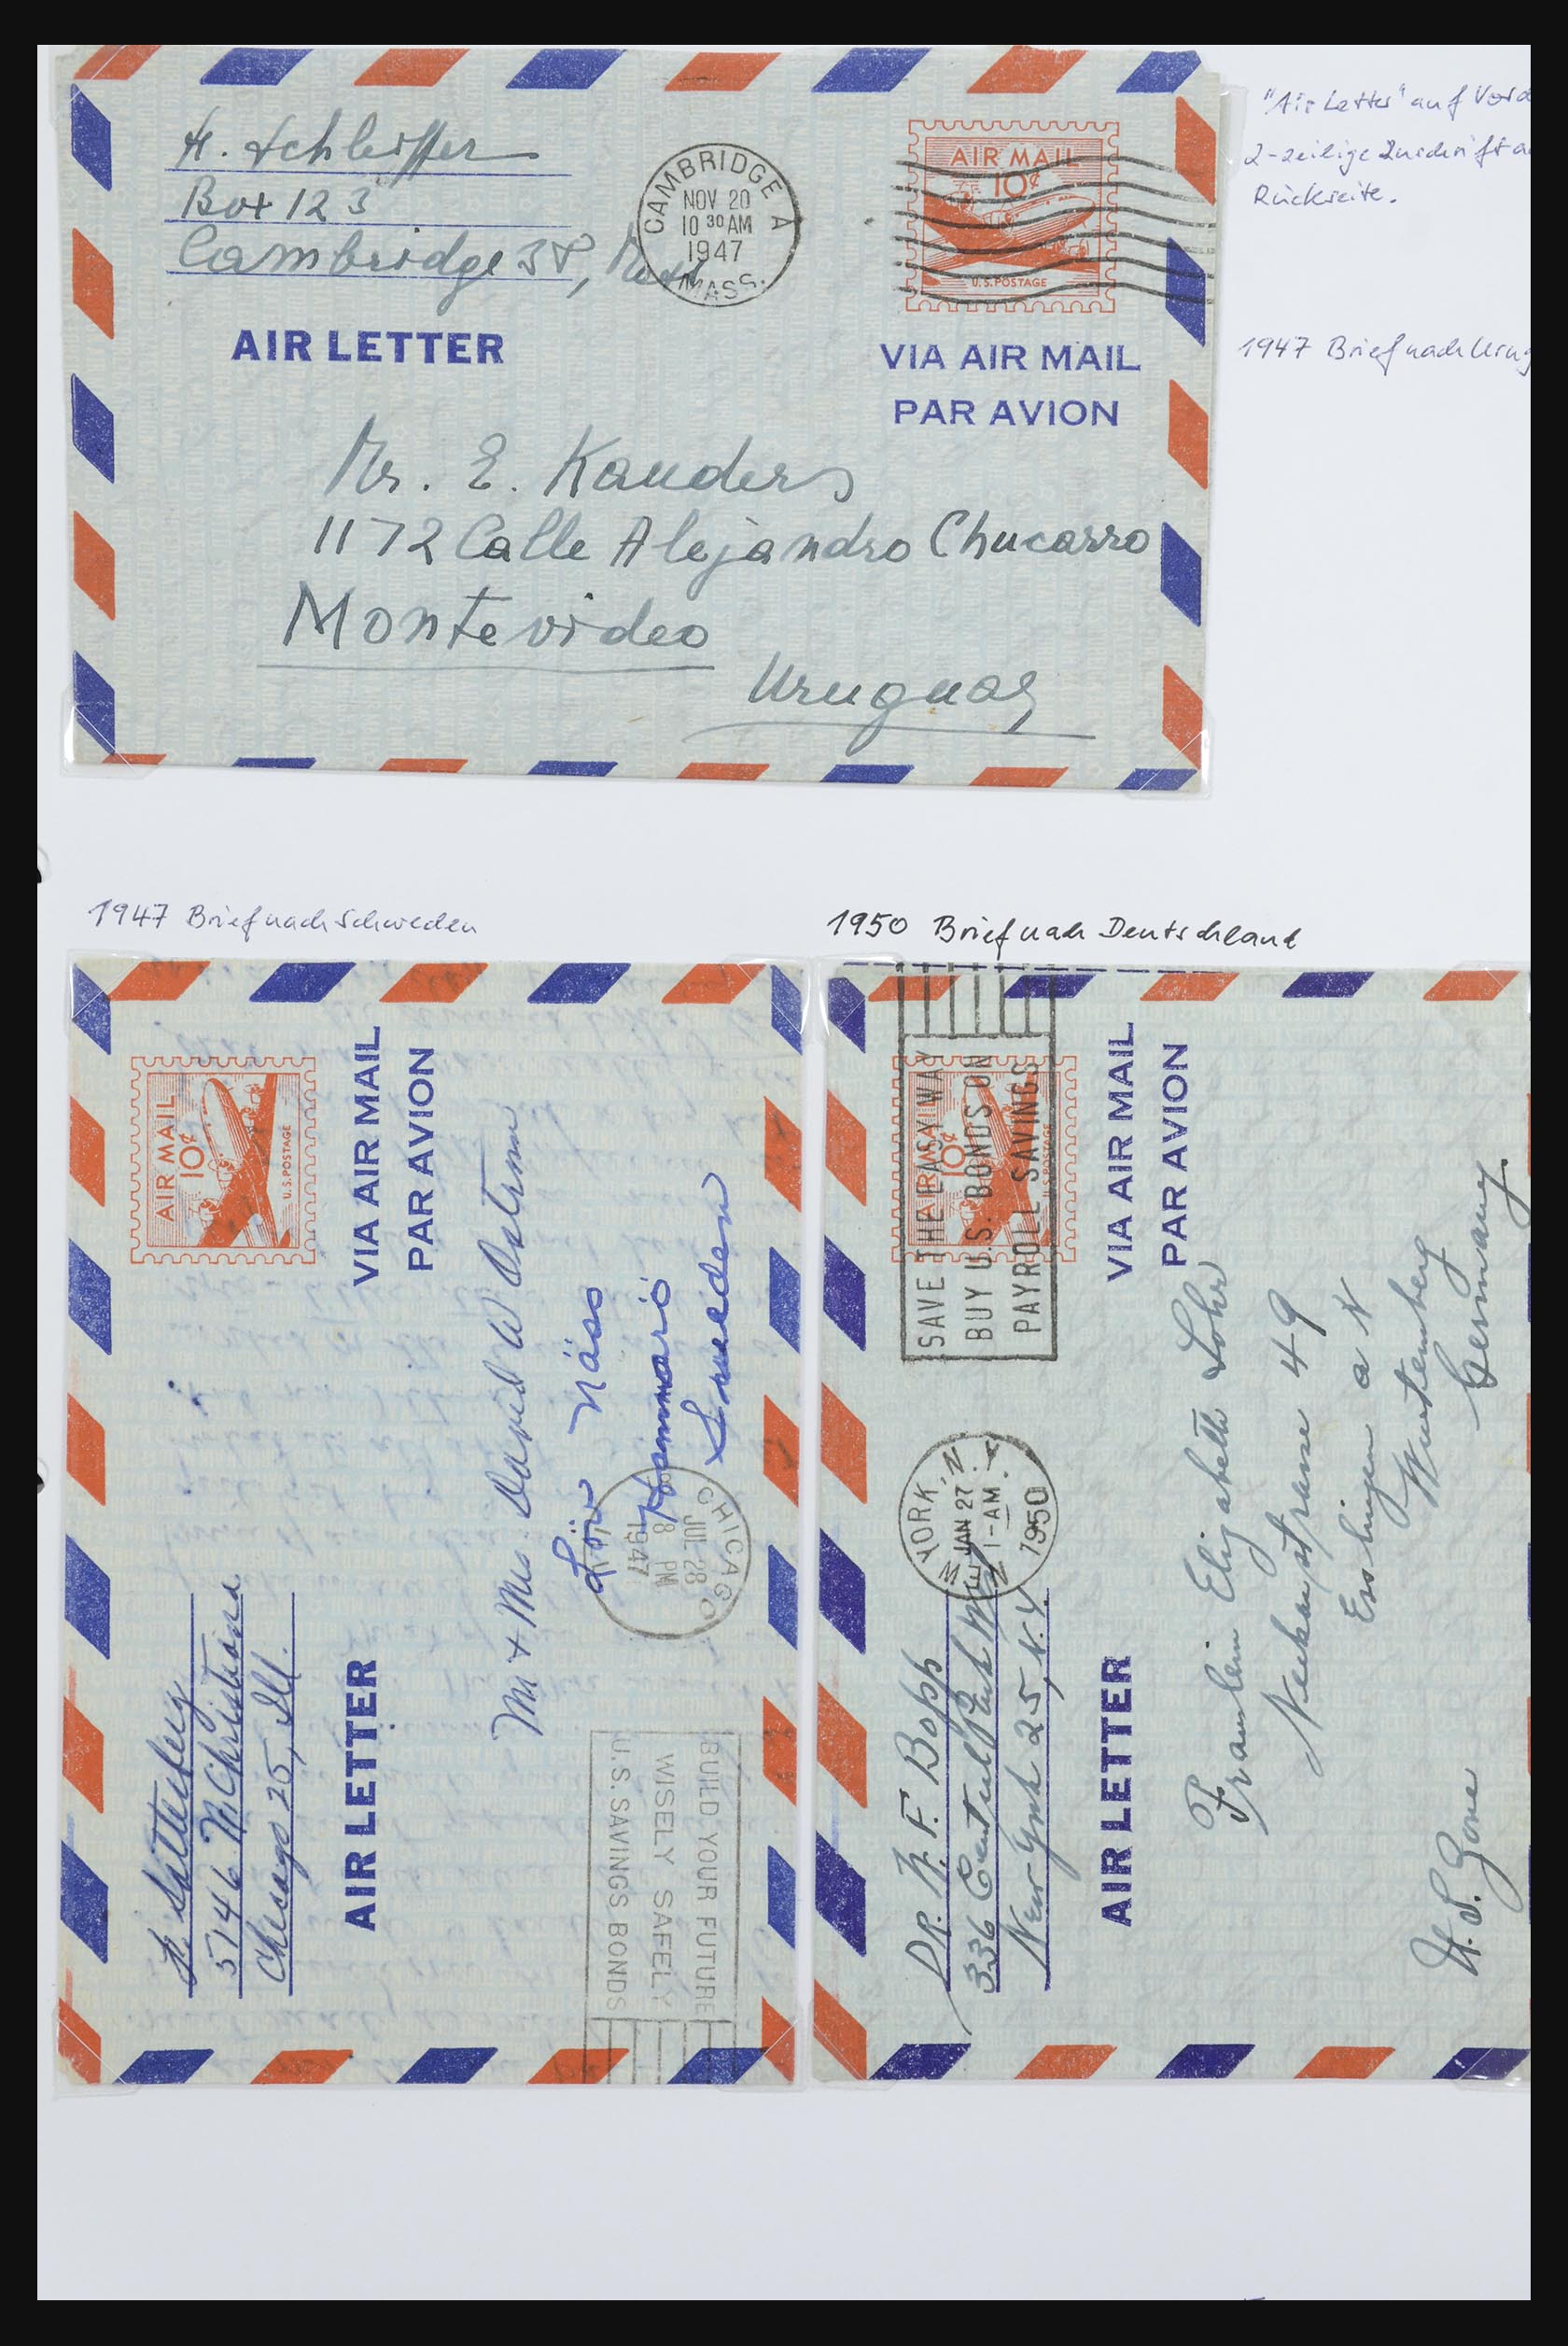 H. Schleiffer
Box 123
Cambridge 38, Mass
CAMBRIDGE A
NOV 20
10 30 AM
1947
MASS.
AIR MAIL
10¢
U.S. POSTAGE
AIR LETTER
VIA AIR MAIL
PAR AVION
Mr. E. Kauders
1172 Calle Alejandro Chucarro
Montevideo
Uruguay
"Air Letter" auf
2-zeilige Inschrift
Rückseite.
1947 Brief nach
1947 Brief nach Schweden
AIR MAIL
10¢
U.S. POSTAGE
VIA AIR MAIL
PAR AVION
5146 N Christiana
Chicago 25, Ill.
AIR LETTER
Mr + Mrs. David W Ostrom
Löv Näss
Hammarö
Sweden
CHICAGO
JUL 28
8 PM
1947
BUILD YOUR FUTURE
WISELY SAFELY
U.S. SAVINGS BONDS
1950 Brief nach Deutschland
AIR MAIL
10¢
U.S. POSTAGE
SAVE THE EASY WAY
BUY U.S. BONDS ON
PAYROLL SAVINGS
VIA AIR MAIL
PAR AVION
YORK, N
JAN 27
1-AM
1950
DR. W. F. Bopp
336 Central Park W
New York 25, N.Y.
AIR LETTER
Fraulein Elizabeth Lohr
Neckarstrasse 49
Esslingen a N
Wurtemberg
Germany
U.S. Zone